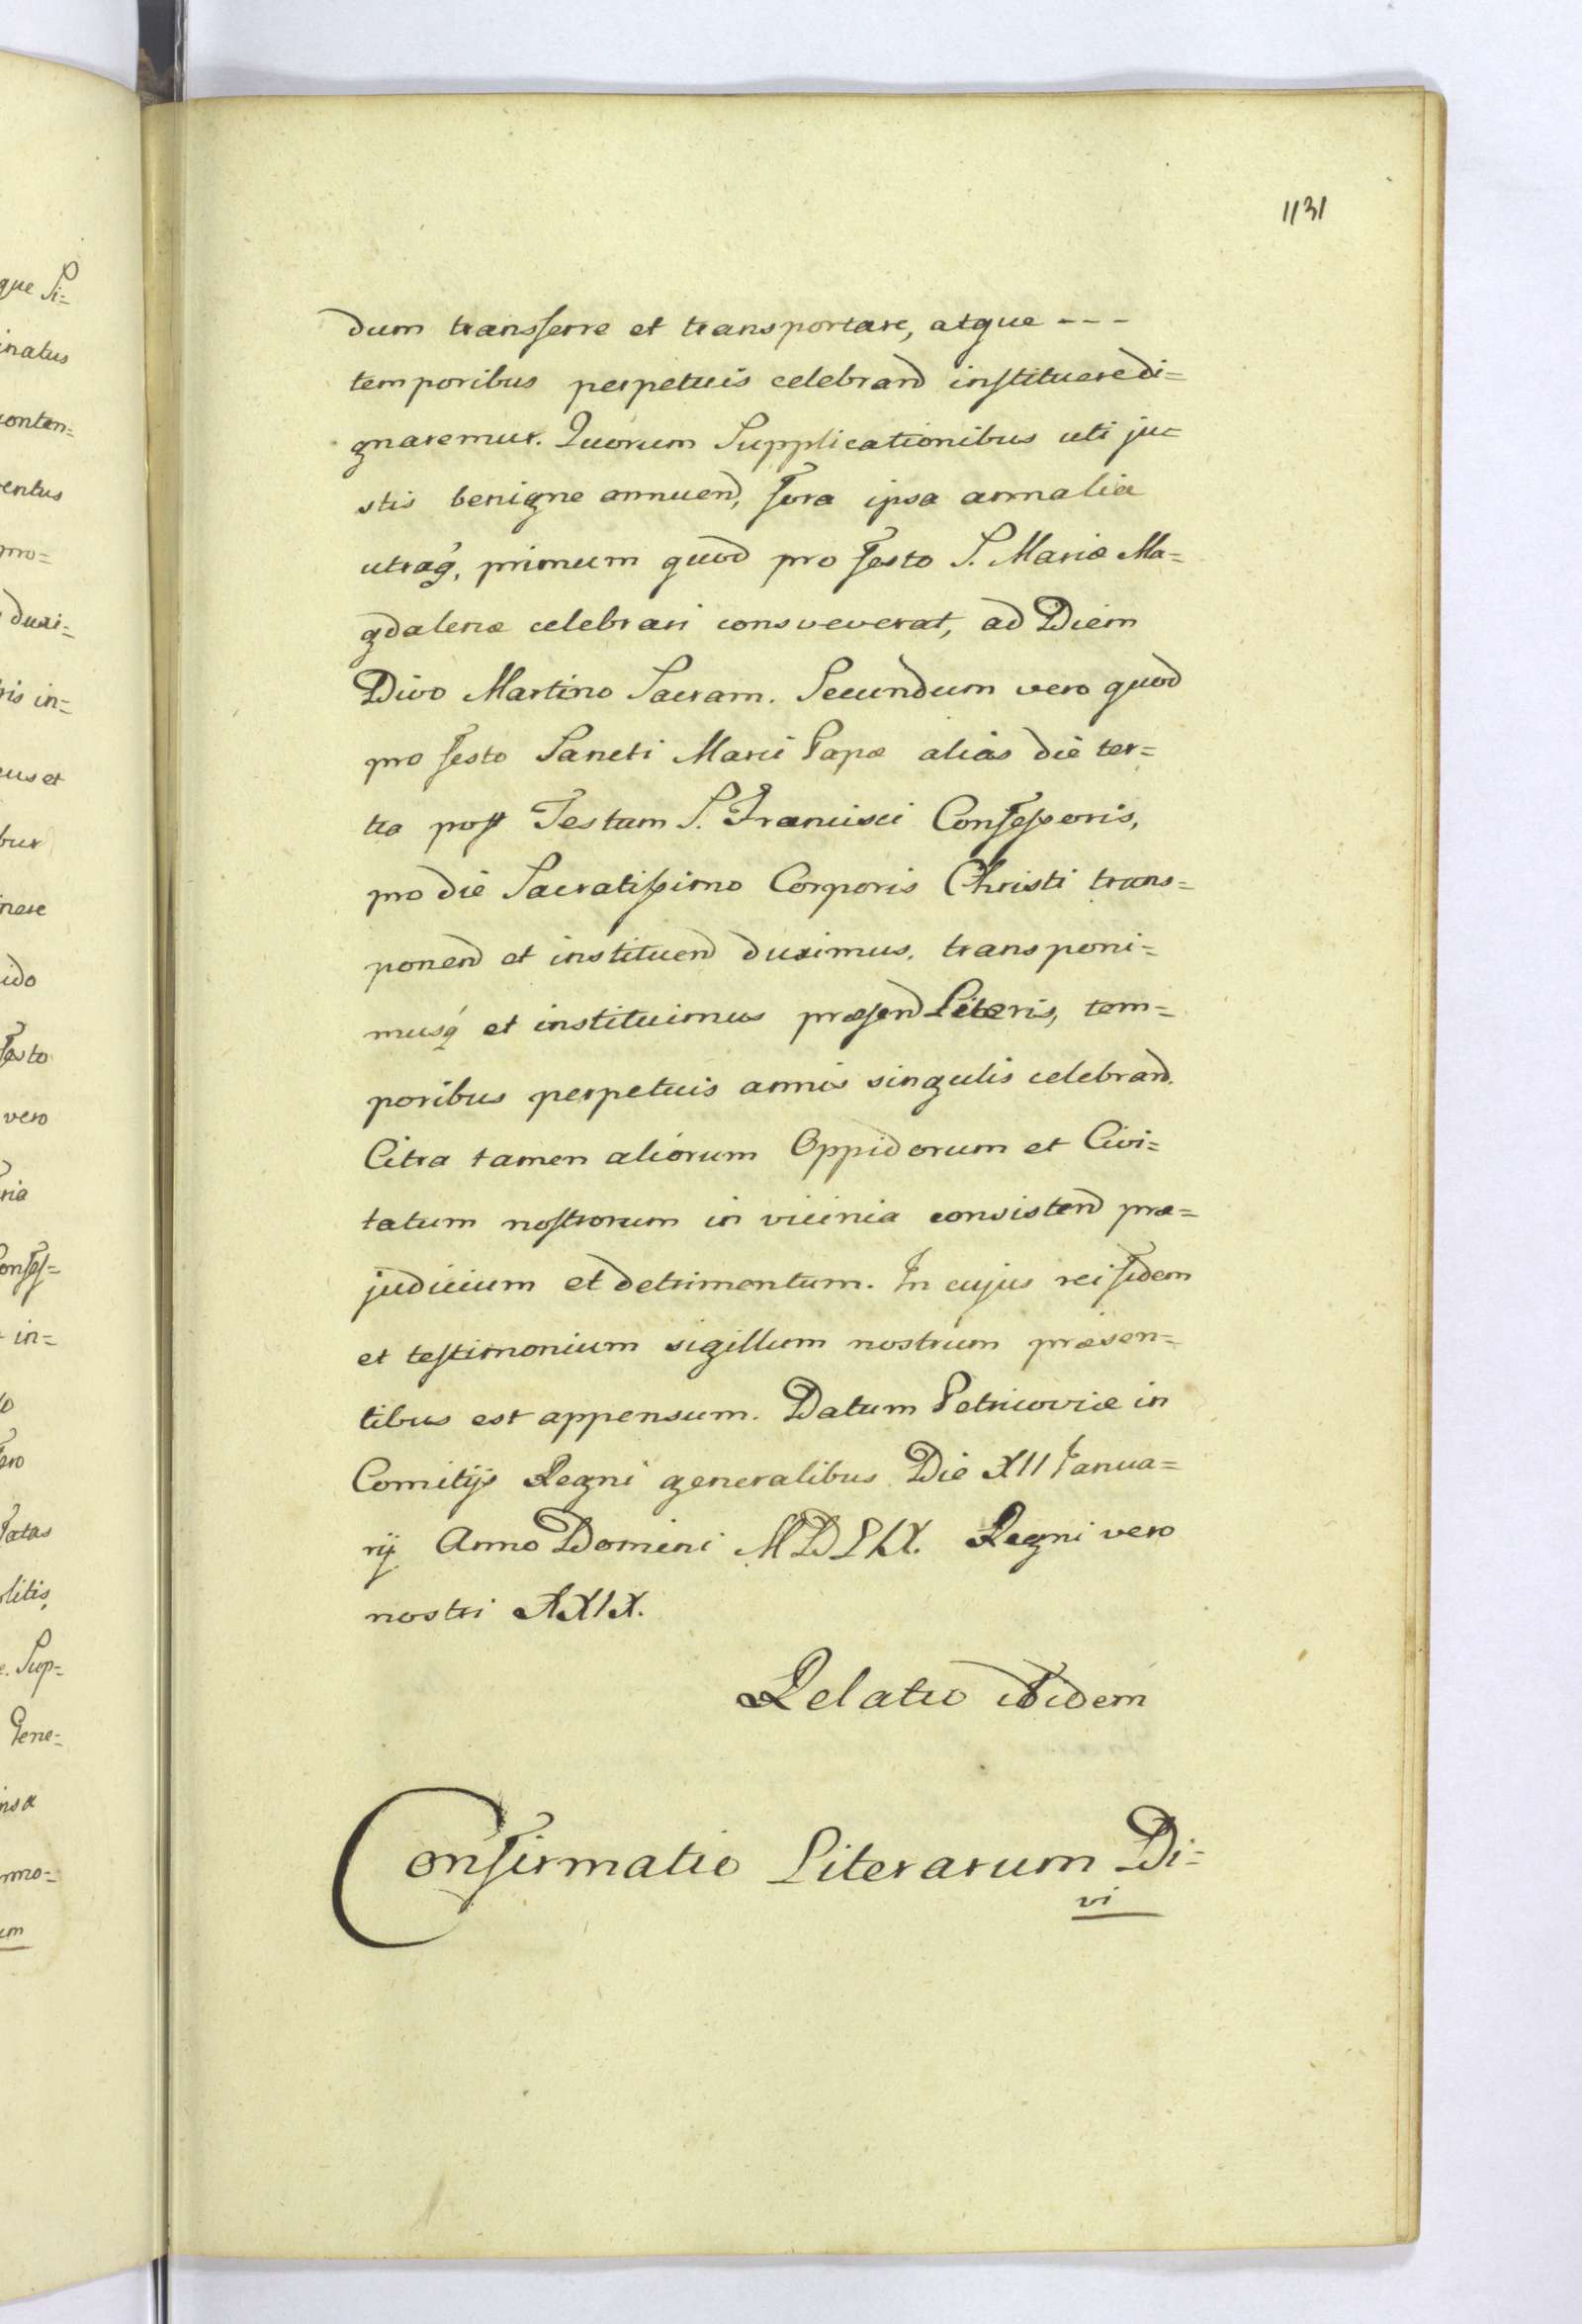 1131
dum transferre et transportare, atque - - -
temporibus perpetuis celebrand instituere di=
gnaremur. Quorum Supplicationibus uti ju=
stis benigne annuend, fora ipsa annalia
utraq, primum quod pro festo S. Mariæ Ma=
gdalenæ celebrari consveverat, ad Diem
Divo Martino Sacram. Secundum vero quod
pro festo Sancti Marci Papæ alias die ter=
tia post Festum S. Francisci Confessoris,
pro die Sacratissimo Corporis Christi trans=
ponend et instituend duximus, transponi=
musq et instituimus præsend Literis, tem=
poribus perpetuis annis singulis celebrand.
Citra tamen aliorum Oppidorum et Civi=
tatum nostrorum in vicinia consistend præ=
judicium et detrimentum. In cujus rei fidem
et testimonium sigillum nostrum præsen=
tibus est appensum. Datum Petricoviæ in
Comitijs Regni generalibus Die XII Janua=
rij Anno Domini MDLIX. Regni vero
nostri XXIX.
Relatio ibidem
Confirmatio Literarum Di=
vi
que Si=
inatus
conten=
ventus
pro=
duxi=
ris in=
eus et
bus
nere
ido
festo
vero
ria
onfes=
in=
ero
litis,
e. Sup=
Gene=
nsa
nno=
um